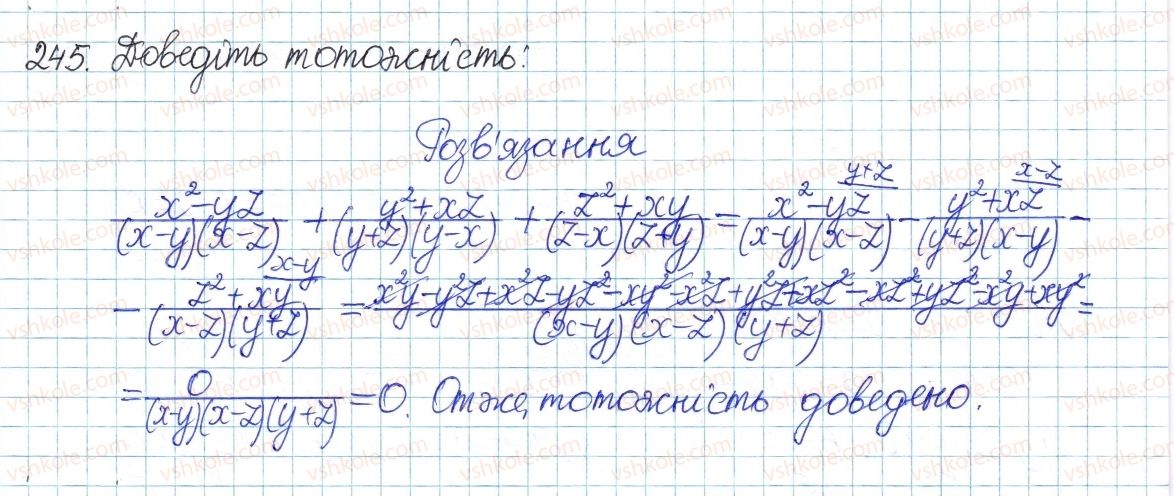 245. Доведіть тотожність:
Розв'язання
\frac{x^2-yz}{(x-y)(x-z)} + \frac{y^2+xz}{(y+z)(y-x)} + \frac{z^2+xy}{(z-x)(z+y)} = \frac{x^2-yz}{(x-y)(x-z)}^{y+z} - \frac{y^2+xz}{(y+z)(x-y)}^{x-z} -
- \frac{z^2+xy}{(x-z)(y+z)}^{x-y} = \frac{x^2y-y^2z+x^2z-yz^2-xy^2-x^2z+y^2z+xz^2-xz^2+yz^2-x^2y+xy^2}{(x-y)(x-z)(y+z)} =
= \frac{0}{(x-y)(x-z)(y+z)} = 0. Отже, тотожність доведено.